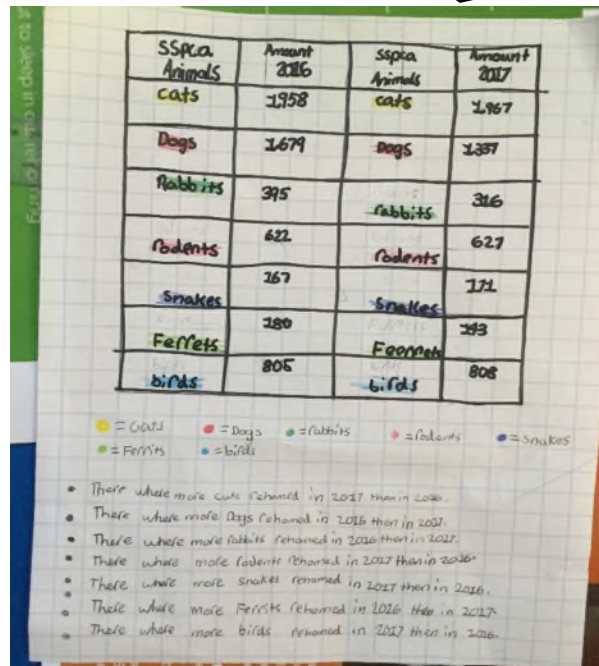 SSPCA Animals Amount 2016 SSPCA Animals Amount 2017
cats 1958 cats 1,967
Dogs 1,679 Dogs 1,337
Rabbits 395 rabbits 316
rodents 622 rodents 627
Snakes 167 Snakes 171
Ferrets 180
birds 805 birds 808
= Cats = Dogs = rabbits = rodents = Snakes
= Ferrits = birds
There where more cats rehomed in 2017 then in 2016.
There where more Dogs rehomed in 2016 then in 2017.
There where more rabbits rehomed in 2016 then in 2017.
There where more rodents rehomed in 2017 then in 2016.
There where more Snakes rehomed in 2017 then in 2016.
There where more Ferrits rehomed in 2016 then in 2017.
There where more birds rehomed in 2017 then in 2016.